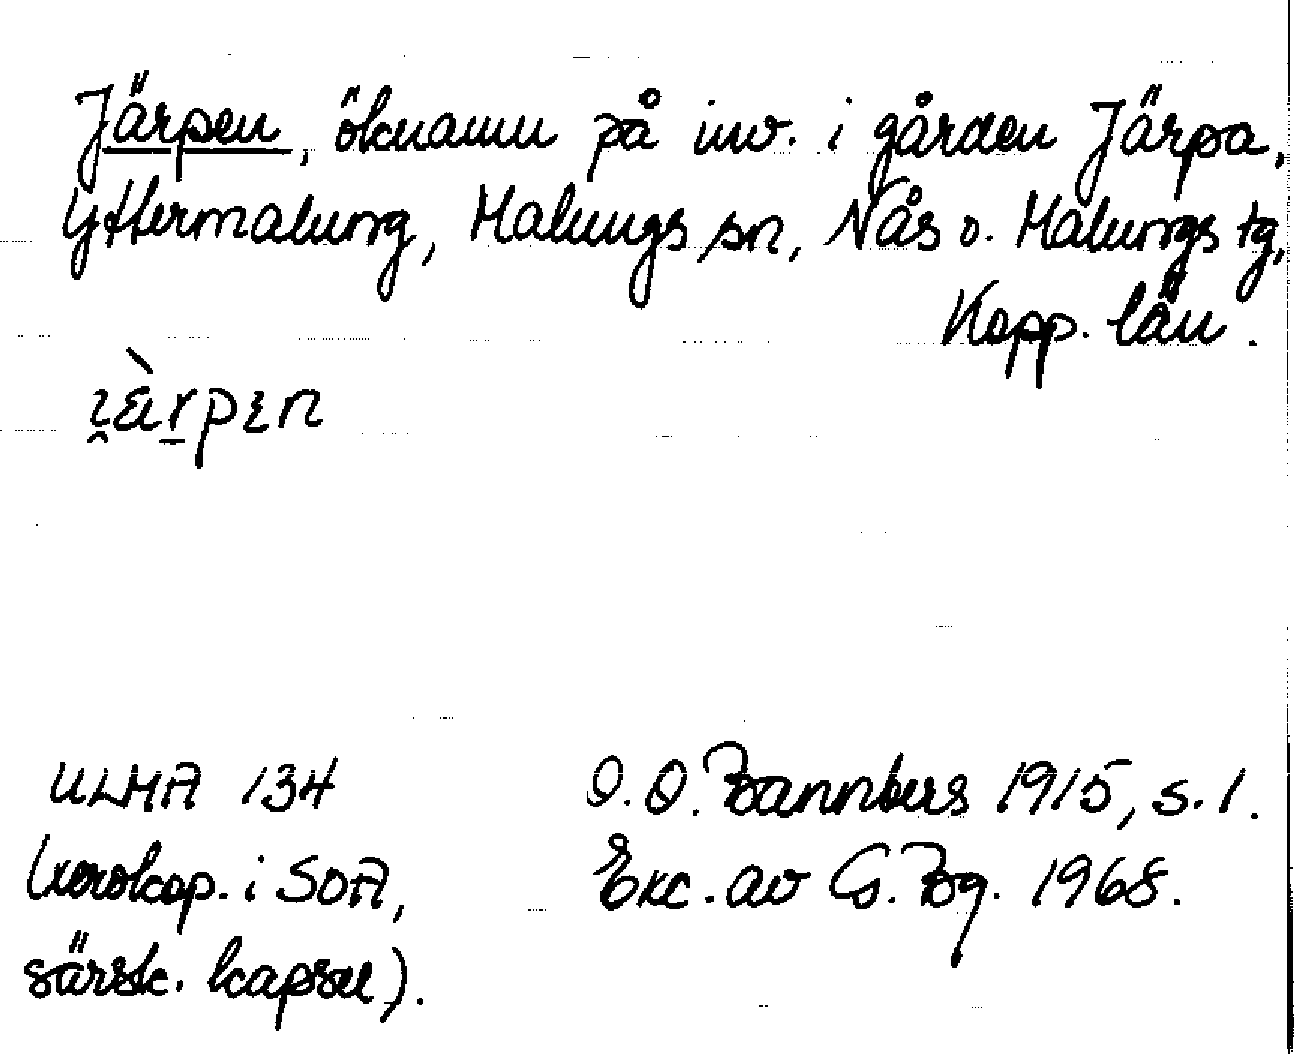 Järpen, öknamn på inv. i gården Järpa,
Yttermalung, Malungs sn, Nås o. Malungs tg,
Kopp. län.
ɪ̯ä̀rpɛn
ULMA 134
(xerokop. i SOA,
särsk. kapsel).
O. O. Bannbers 1915, s. 1.
Exc. av G. Bg. 1968.